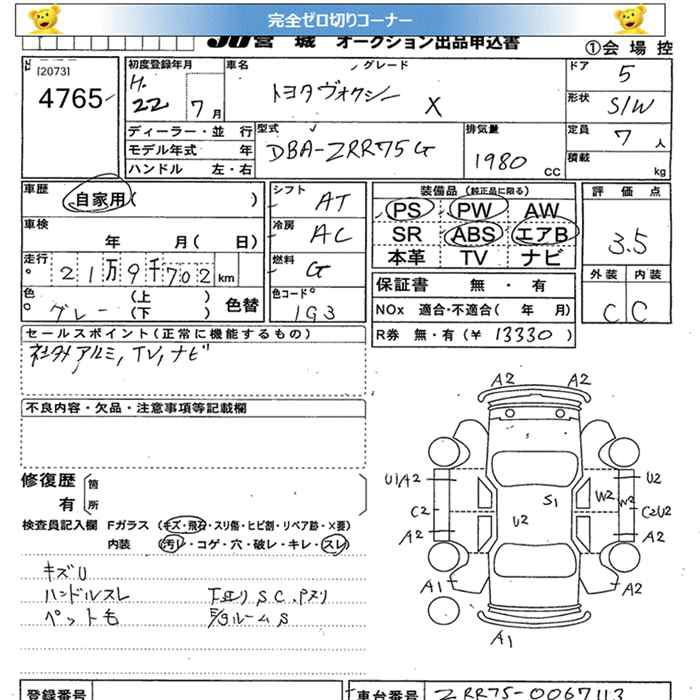 完全ゼロ切りコーナー
JU宮城 オークション出品申込書
①会場控
[2073]
4765
初度登録年月 車名 グレード ドア 5
H.22 7月 トヨタヴォクシー X 形状 S/W
ディーラー・並行 型式 排気量 定員 7人
モデル年式 年 DBA-ZRR75G 1980cc 積載 kg
ハンドル 左・右
車歴 自家用( ) シフト AT 装備品(純正品に限る) 評価点
PS PW AW
車検 年 月( 日) 冷房 AC SR ABS エアB 3.5
走行 21万9千702km 燃料 G 本革 TV ナビ
外装 内装
保証書 無・有 C C
色 グレー (上)(下) 色替 色コード 1G3 NOx 適合・不適合( 年 月)
R券 無・有(¥ 13330 )
セールスポイント(正常に機能するもの)
社外アルミ,TV,ナビ
不良内容・欠品・注意事項等記載欄
修復歴 箇所
有
検査員記入欄 Fガラス (キズ・飛石・スリ傷・ヒビ割・リペア跡・×要)
内装 (汚レ・コゲ・穴・破レ・キレ・スレ)
キズU
ハンドルスレ 下回り S.C.パスリ
ペット毛 E/gルームS
A2 A2
U1/A2 U2
S1 W2 W2
C2 U2 C2U2
A2 A2
A1 A2
A1
登録番号 車台番号 ZRR75-0067113